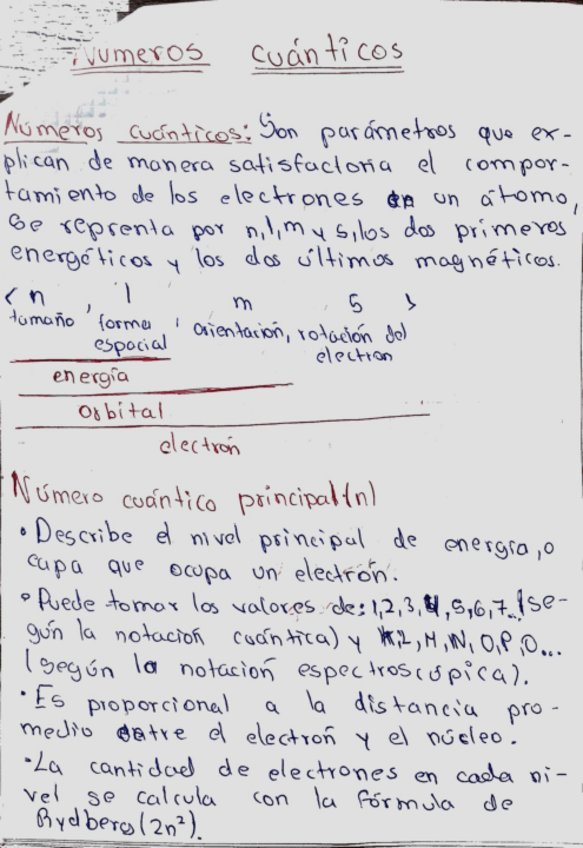 Numeros cuánticos
Números cuánticos: Son parámetros que ex-
plican de manera satisfactoria el compor-
tamiento de los electrones en un átomo,
se reprenta por n,l,m y s, los dos primeros
energéticos y los dos últimos magnéticos.
< n , l m s >
tamaño , forma , orientación, rotación del
espacial electron
energía
orbital
electrón
Número cuántico principal (n)
• Describe el nivel principal de energía, o
capa que ocupa un electrón.
• Puede tomar los valores de: 1,2,3,4,5,6,7.. (se-
gún la notación cuántica) y K,L,M,N,O,P,Q...
(según la notación espectroscópica).
• Es proporcional a la distancia pro-
medio entre el electrón y el núcleo.
• La cantidad de electrones en cada ni-
vel se calcula con la fórmula de
Rydberg (2n²).